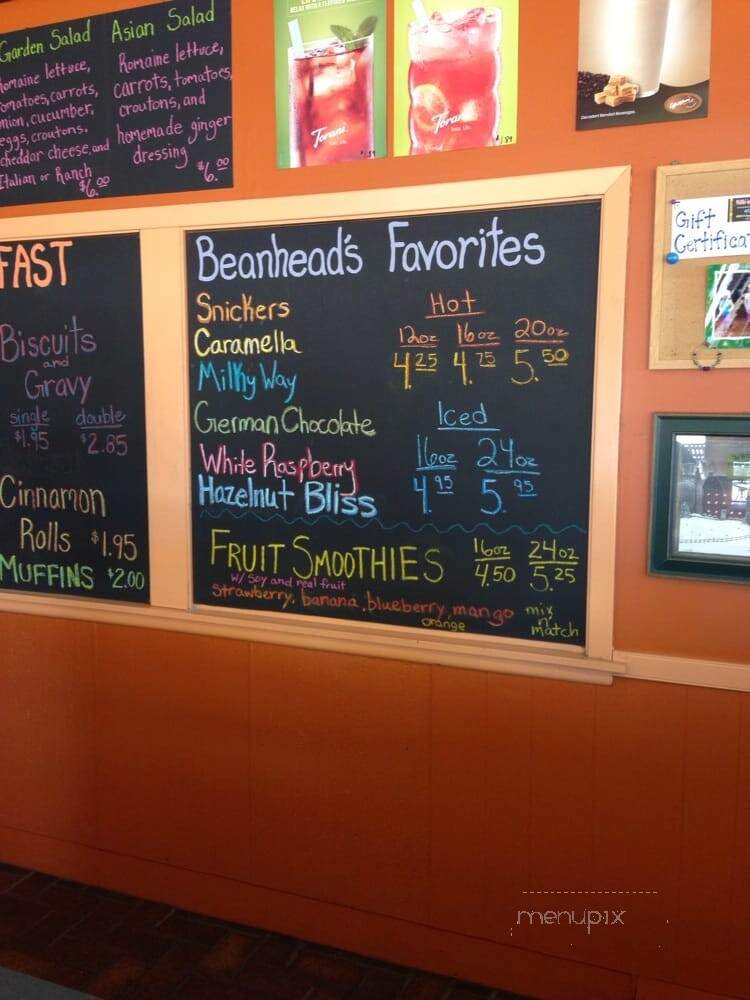 Garden Salad
Romaine lettuce,
tomatoes, carrots,
onion, cucumber,
eggs, croutons,
cheddar cheese, and
Italian or Ranch
$6.00
Asian Salad
Romaine lettuce,
carrots, tomatoes,
croutons, and
homemade ginger
dressing
$6.00
Torani
Torani
Gift
Certifica
FAST
Biscuits
and
Gravy
single double
$1.95 $2.85
Cinnamon
Rolls $1.95
MUFFINS $2.00
Beanhead's Favorites
Snickers
Caramella
Milky Way
German Chocolate
White Raspberry
Hazelnut Bliss
Hot
12oz 16oz 20oz
4.25 4.75 5.50
Iced
16oz 24oz
4.95 5.95
FRUIT SMOOTHIES
16oz 24oz
4.50 5.25
w/ soy and real fruit
strawberry, banana, blueberry, mango
orange
mix
n
match
menupix